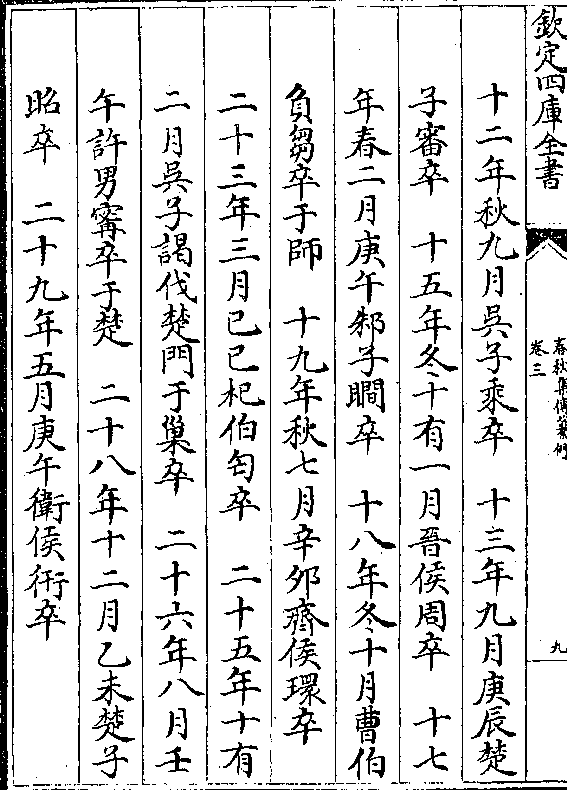 欽定四庫全書
春秋集傳纂例
卷三
九
十二年秋九月吳子乘卒　十三年九月庚辰楚
子審卒　十五年冬十有一月晉侯周卒　十七
年春二月庚午邾子瞯卒　十八年冬十月曹伯
負芻卒于師　十九年秋七月辛卯齊侯環卒
二十三年三月己巳杞伯匄卒　二十五年十有
二月吳子謁伐楚門于巢卒　二十六年八月壬
午許男寗卒于楚　二十八年十二月乙未楚子
昭卒　二十九年五月庚午衛侯衎卒